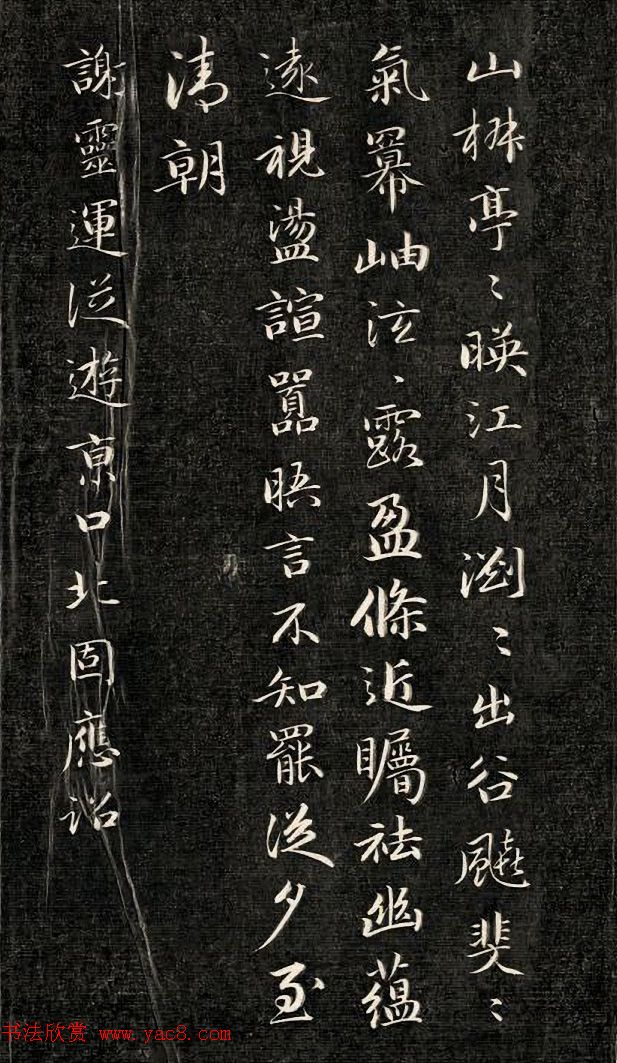 山椒亭〻映江月瀏〻出谷飈斐〻
氣羃岫泫〻露盈條近矚祛幽藴
遠視盪諠囂晤言不知罷從夕至
清朝
謝靈運從遊京口北固應詔
书法欣赏 www.yac8.com